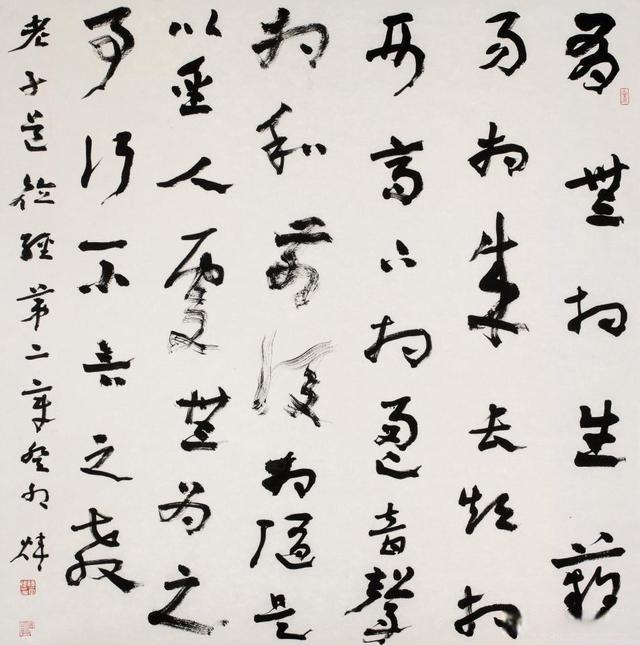 有無相生難
易相成長短相
形高下相音聲
相和前後相隨是
以聖人處無為之
事行不言之教
老子道德經第二章癸卯煒